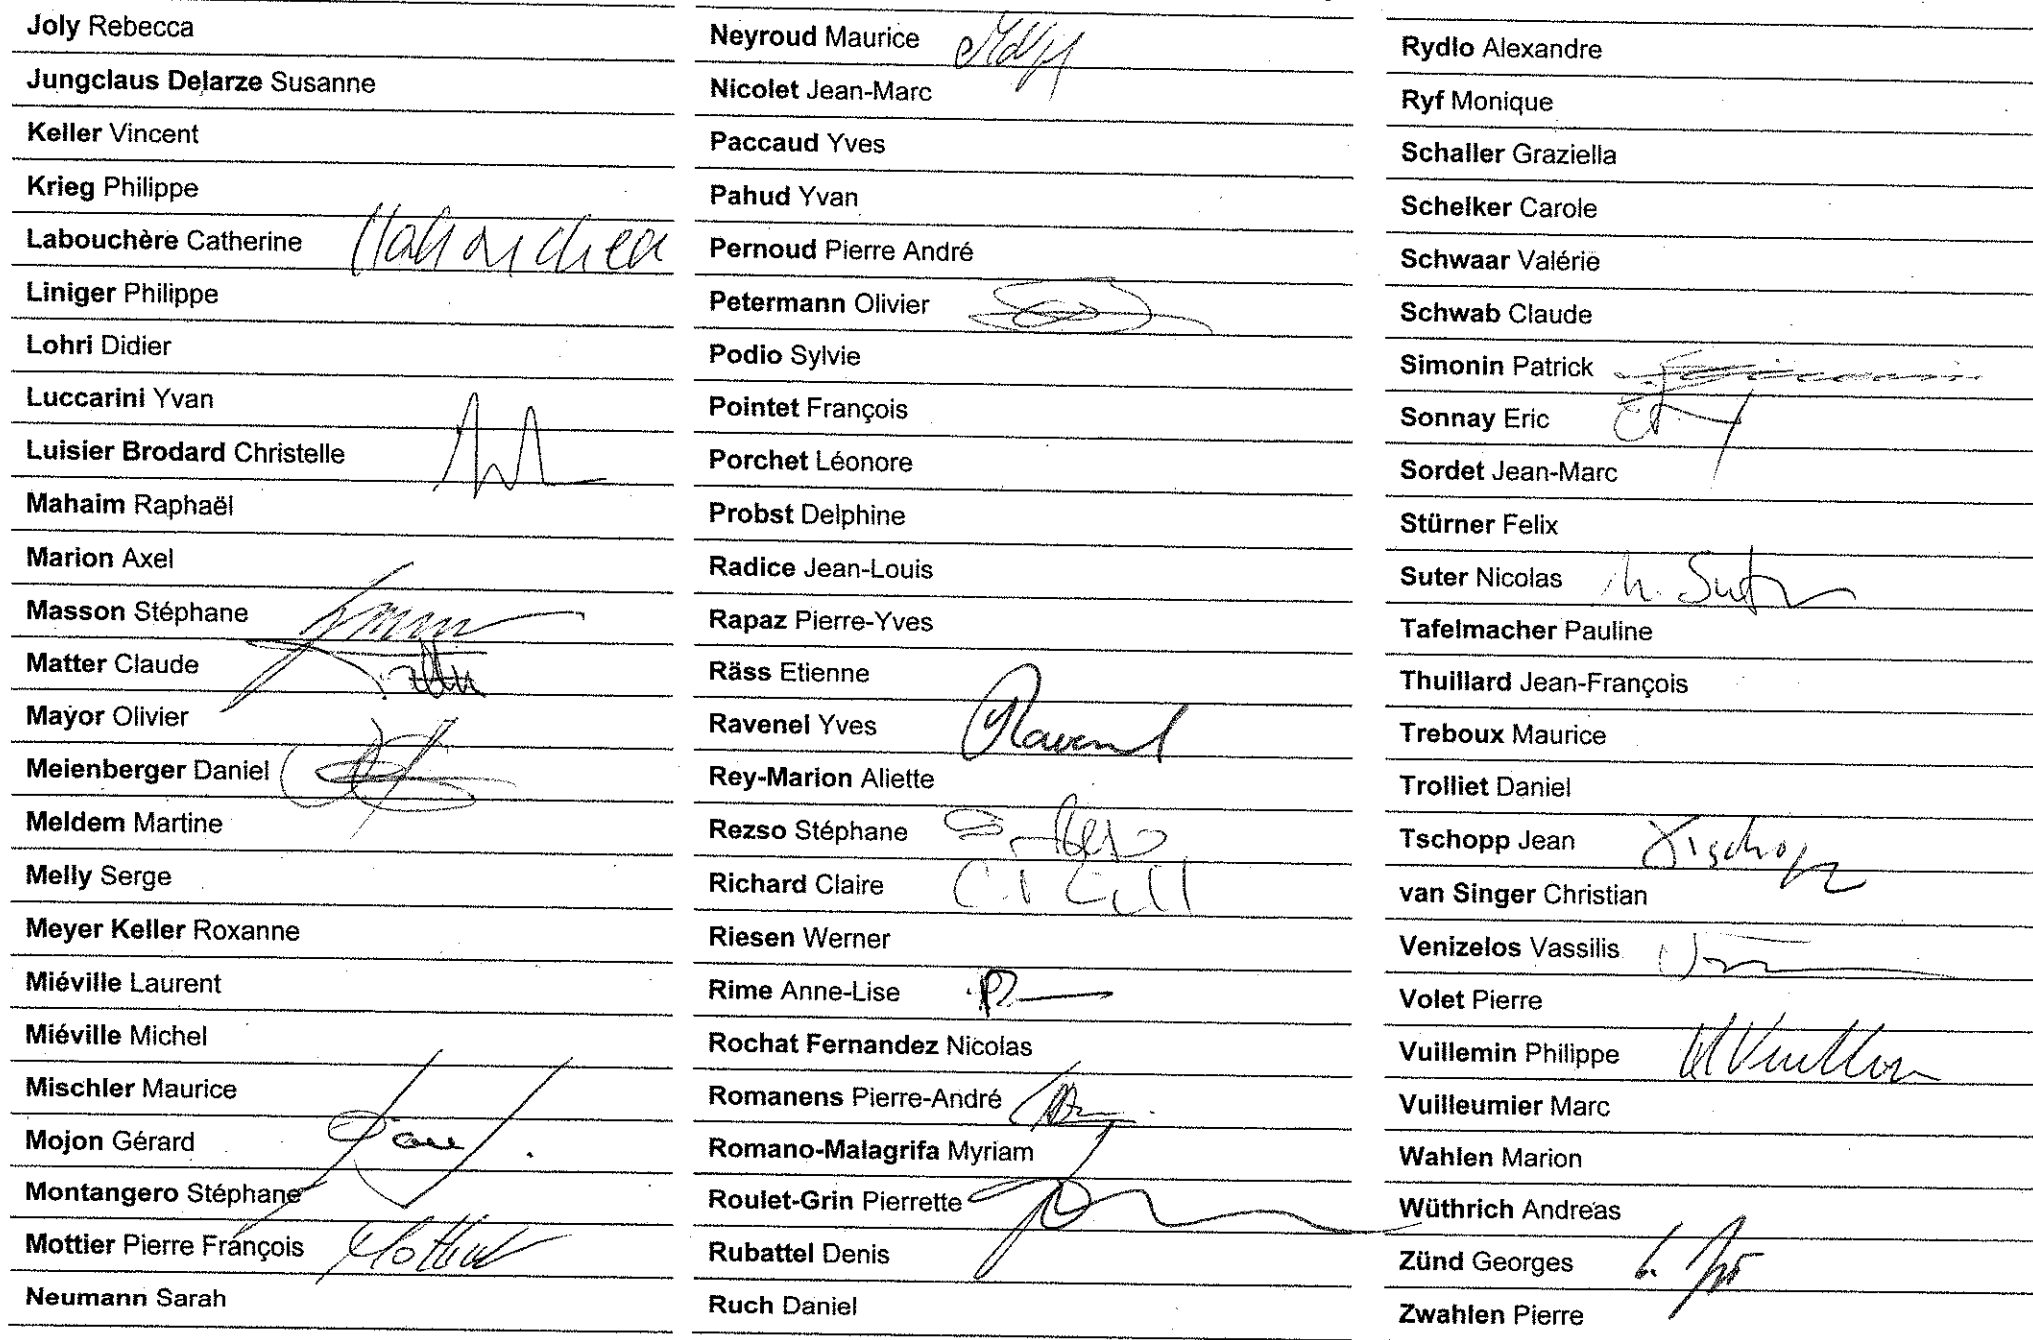 Joly Rebecca
Jungclaus Delarze Susanne
Keller Vincent
Krieg Philippe
Labouchère Catherine
Liniger Philippe
Lohri Didier
Luccarini Yvan
Luisier Brodard Christelle
Mahaim Raphaël
Marion Axel
Masson Stéphane
Matter Claude
Mayor Olivier
Meienberger Daniel
Meldem Martine
Melly Serge
Meyer Keller Roxanne
Miéville Laurent
Miéville Michel
Mischler Maurice
Mojon Gérard
Montangero Stéphane
Mottier Pierre François Mottier
Neumann Sarah
Neyroud Maurice
Nicolet Jean-Marc
Paccaud Yves
Pahud Yvan
Pernoud Pierre André
Petermann Olivier
Podio Sylvie
Pointet François
Porchet Léonore
Probst Delphine
Radice Jean-Louis
Rapaz Pierre-Yves
Räss Etienne
Ravenel Yves Ravenel
Rey-Marion Aliette
Rezso Stéphane
Richard Claire
Riesen Werner
Rime Anne-Lise
Rochat Fernandez Nicolas
Romanens Pierre-André
Romano-Malagrifa Myriam
Roulet-Grin Pierrette
Rubattel Denis
Ruch Daniel
Rydlo Alexandre
Ryf Monique
Schaller Graziella
Schelker Carole
Schwaar Valérie
Schwab Claude
Simonin Patrick
Sonnay Eric
Sordet Jean-Marc
Stürner Felix
Suter Nicolas N. Suter
Tafelmacher Pauline
Thuillard Jean-François
Treboux Maurice
Trolliet Daniel
Tschopp Jean Tschopp
van Singer Christian
Venizelos Vassilis
Volet Pierre
Vuillemin Philippe
Vuilleumier Marc
Wahlen Marion
Wüthrich Andreas
Zünd Georges
Zwahlen Pierre